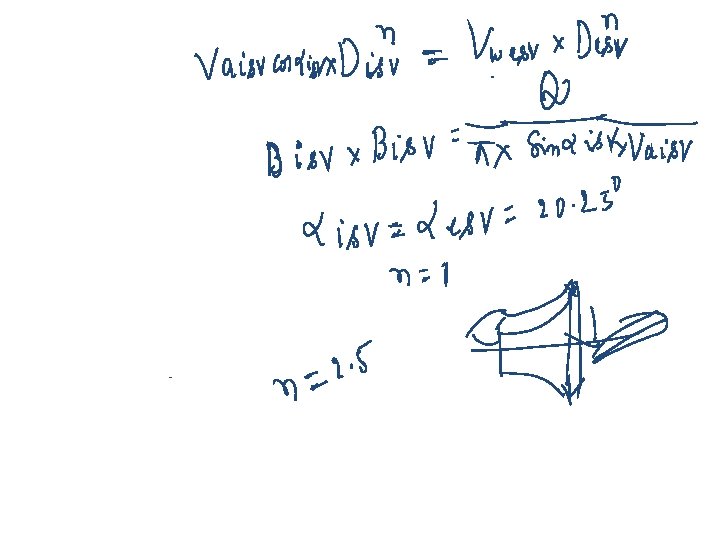 Vaisv cosαisv x Disv^n = Vwesv x Desv^n
Bisv x Bisv = Q / (π x sinα isv x Vaisv)
α isv = α esv = 20.25°
n = 1
n = 2.5